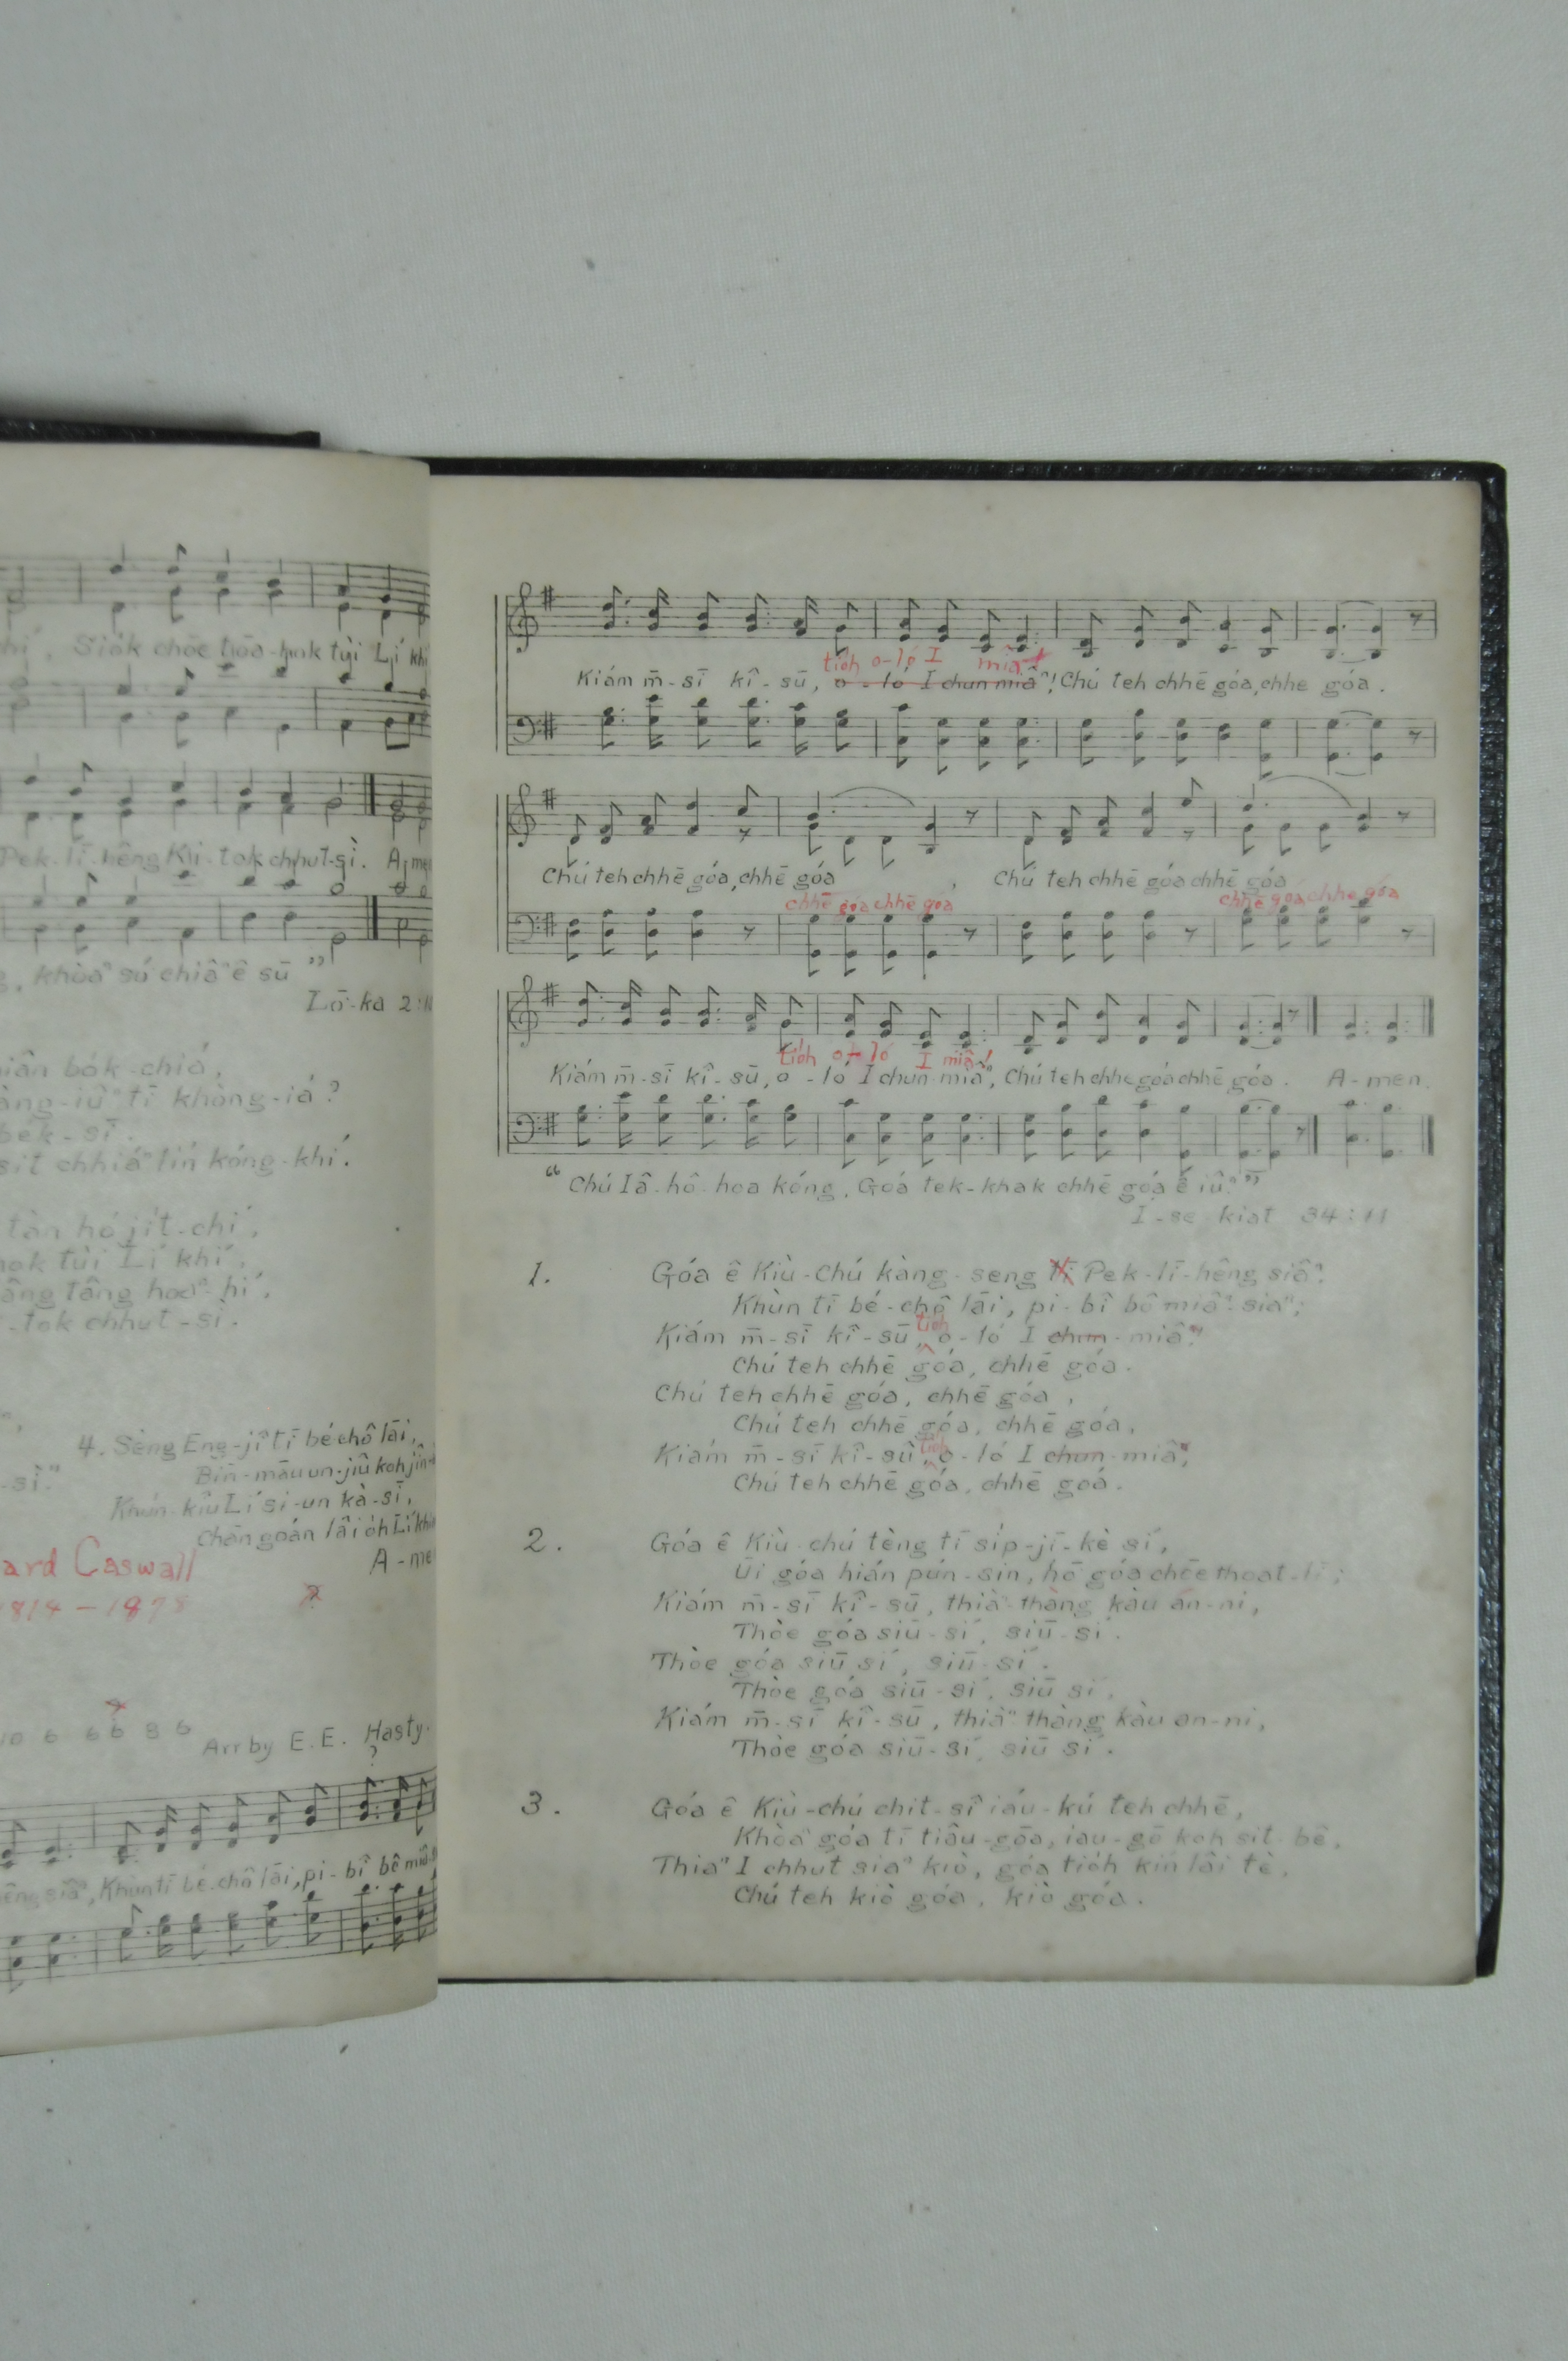 Siók chōe tōa-hok tùi Lí khí
Pek-lī-hêng Kù-tok chhut-sì. A-men
khòaⁿ sú chiâⁿ ê sū ”
Lō͘-ka 2:
bo̍k-chiá,
tī khòng-iá?
be̍k-sī.
chhiáⁿ lín kóng-khí.
tàn hó ji̍t-chí,
tùi Lí khí,
tâng hoaⁿ-hí,
-tok chhut-sì.
4. Sèng Eng-jî tī bé-chô lāi,
Bīn-māu un-jiû koh jîn-
Khún-kiû Lí si-un kà-sī,
Chān goán lâi o̍h Lí khó
A-me
ard Caswall
1814 – 1878
?
10 6 6 6 8 6
Arr by E. E. Hasty.
?
siâⁿ, Khùn tī bé-chô lāi, pi-bî bô miâ-
tio̍h o-ló I miâⁿ!
Kiám m̄-sī kî-sū, o-ló I chun miâⁿ! Chú teh chhē góa, chhe góa.
Chú teh chhē góa, chhē góa, Chú teh chhē góa chhē góa
chhē góa chhē góa chhē góa chhe góa
tio̍h o-ló I miâⁿ!
Kiám m̄-sī kî-sū, o-ló I chun-miâⁿ, Chú teh chhe góa chhē góa. A-men.
“ Chú Iâ-hô-hoa kóng, Goá tek-khak chhē góa ê iûⁿ ”
I-se-kiat 34:11
1. Góa ê Kiù-Chú kàng-seng tī Pek-lī-hêng siâⁿ,
Khùn tī bé-chô lāi, pi-bî bô miâⁿ-siaⁿ;
tio̍h
Kiám m̄-sī kî-sū, o-ló I chun-miâⁿ!
Chú teh chhē góa, chhē góa.
Chú teh chhē góa, chhē góa,
Chú teh chhē góa, chhē góa,
tio̍h
Kiám m̄-sī kî-sū, o-ló I chun-miâⁿ,
Chú teh chhē góa, chhē goá.
2. Góa ê Kiù-chú tèng tī si̍p-jī-kè sí,
Ūi góa hián pún-sin, hō͘ góa chōe thoat-lī;
Kiám m̄-sī kî-sū, thiàⁿ-thàng kàu án-ni,
Thòe góa siū-sí, siū-sí.
Thòe góa siū sí, siū-sí.
Thòe góa siū-sí, siū sí,
Kiám m̄-sī kî-sū, thiàⁿ thàng kàu an-ni,
Thòe góa siū-sí, siū sí.
3. Góa ê Kiù-chú chit-sî iáu-kú teh chhē,
Khòaⁿ góa tī tiâu-gōa, iau-gō koh sit-bê,
Thiaⁿ I chhut siaⁿ kiò, góa tio̍h kín lâi tè,
Chú teh kiò góa, kiò góa.